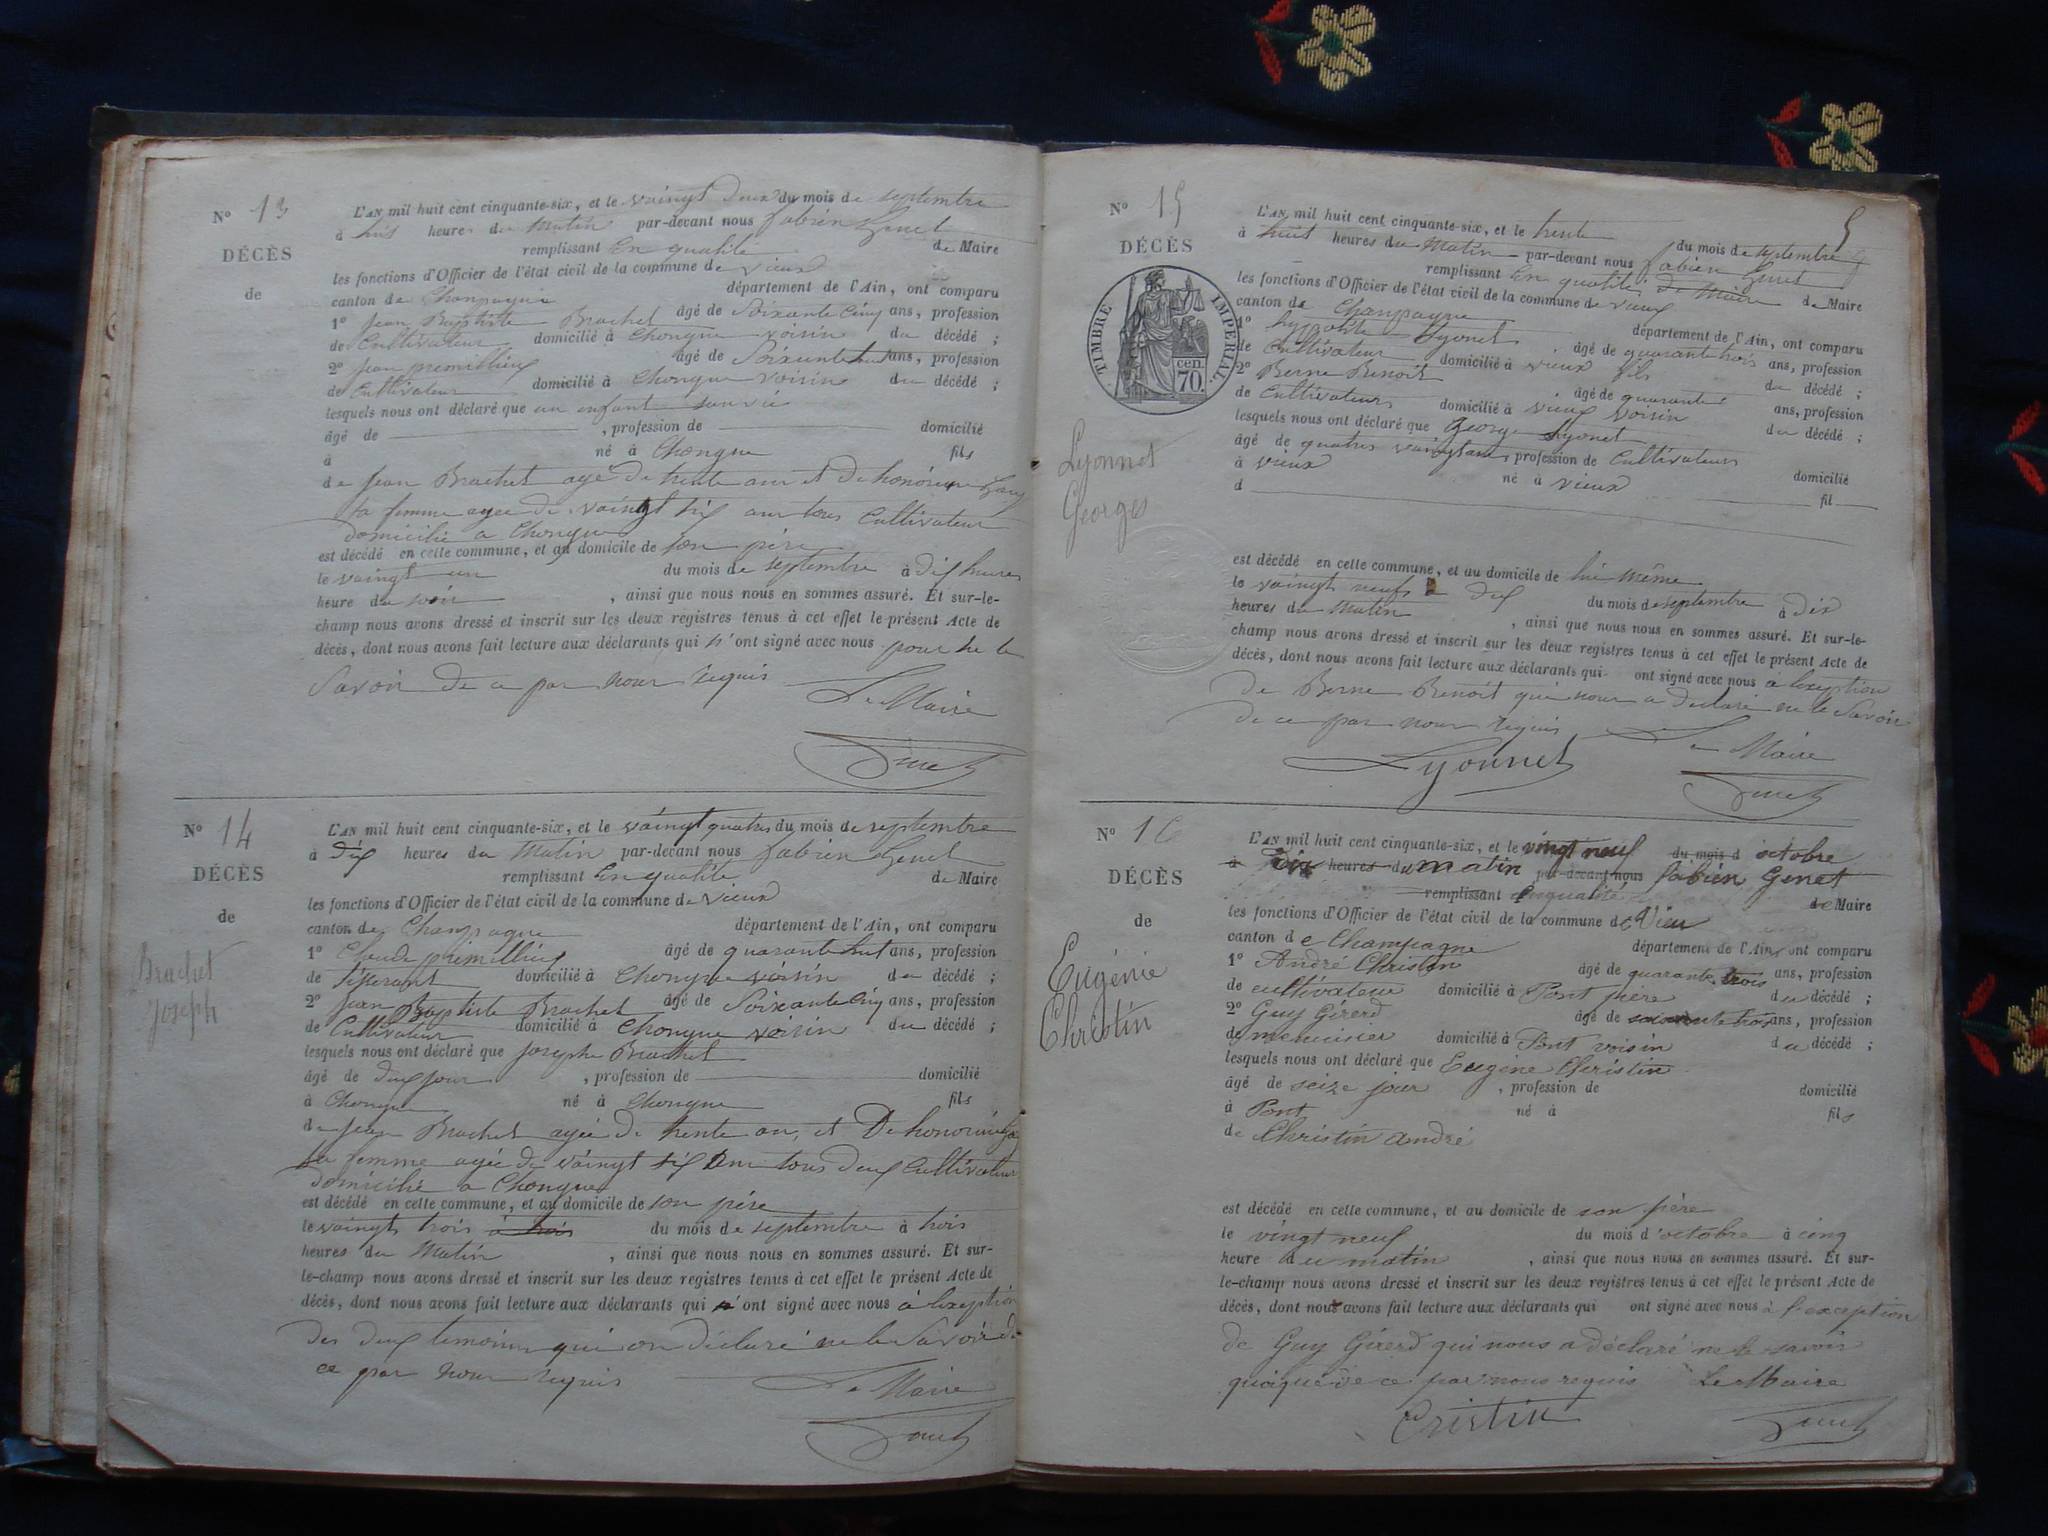 Nº 13
DÉCÈS
de
L'AN mil huit cent cinquante-six, et le vaingt Deux du mois de septembre
à huit heures du Matin par-devant nous fabien Genet
remplissant En qualité de Maire
les fonctions d'Officier de l'état civil de la commune de vieux
canton de Chanpagne département de l'Ain, ont comparu
1º Jean Baptiste Brachet âgé de Soixante Cinq ans, profession
de Cultivateur domicilié à Chongne voisin du décédé ;
2º Jean premillieux âgé de Soixante huit ans, profession
de Cultivateur domicilié à Chongne voisin du décédé ;
lesquels nous ont déclaré que un enfant san vie
âgé de , profession de domicilié
à né à Chongne fils
de Jean Brachet agé de trente ans et De honorine
sa femme agée de vaingt six ans tous Cultivateur
domicilié a Chongne
est décédé en cette commune, et au domicile de son père
le vaingt un du mois de septembre à dix heures
heure du soir , ainsi que nous nous en sommes assuré. Et sur-le-
champ nous avons dressé et inscrit sur les deux registres tenus à cet effet le présent Acte de
décès, dont nous avons fait lecture aux déclarants qui n'ont signé avec nous pour ne le
Savoir De ce par nous requis
Le Maire
Genet
Nº 14
DÉCÈS
de
Brachet
Joseph
L'AN mil huit cent cinquante-six, et le vaingt quatres du mois de septembre
à dix heures du Matin par-devant nous fabien Genet
remplissant En qualité de Maire
les fonctions d'Officier de l'état civil de la commune de vieux
canton de Chanpagne département de l'Ain, ont comparu
1º Claude primillieux âgé de quarante huit ans, profession
de Tiserant domicilié à Chongne voisin du décédé ;
2º Jean Baptiste Brachet âgé de Soixante Cinq ans, profession
de Cultivateur domicilié à Chongne voisin du décédé ;
lesquels nous ont déclaré que Josephe Brachet
âgé de deux jour , profession de domicilié
à Chongne né à Chongne fils
de Jean Brachet agée De trente an, et De honorine
sa femme agée de vaingt six ans tous deux Cultivateur
domicilié a Chongne
est décédé en cette commune, et au domicile de son père
le vaingt trois à trois du mois de septembre à trois
heures du Matin , ainsi que nous nous en sommes assuré. Et sur-
le-champ nous avons dressé et inscrit sur les deux registres tenus à cet effet le présent Acte de
décès, dont nous avons fait lecture aux déclarants qui n'ont signé avec nous à lexeption
des deux temoins qui on déclaré ne le Savoir de
ce par nous requis
Le Maire
Genet
Nº 15
5
DÉCÈS
TIMBRE IMPERIAL.
70. cen.
Lyonnet
Georges
L'AN mil huit cent cinquante-six, et le trente du mois de septembre
à huit heures du Matin par-devant nous fabien Genet
remplissant En qualité de Maire de Maire
les fonctions d'Officier de l'état civil de la commune de vieux
canton de Chanpagne département de l'Ain, ont comparu
1º hypolite Lyonet âgé de quarante trois ans, profession
de Cultivateur domicilié à vieux fils du décédé ;
2º Berne Benoit âgé de quarante ans, profession
de Cultivateurs domicilié à vieux voisin du décédé ;
lesquels nous ont déclaré que George Lyonet
âgé de quatres vaingt ans profession de Cultivateurs domicilié
à vieux né à vieux fil
d
est décédé en cette commune, et au domicile de lui même
le vaingt neuf à dix du mois de septembre à dix
heures du Matin , ainsi que nous nous en sommes assuré. Et sur-le-
champ nous avons dressé et inscrit sur les deux registres tenus à cet effet le présent Acte de
décès, dont nous avons fait lecture aux déclarants qui ont signé avec nous à lexeption
De Berne Benoit qui nous a declaré ne le Savoir
De ce par nous requis
Le Maire
Lyonnet
Genet
Nº 16
DÉCÈS
de
Eugénie
Christin
L'AN mil huit cent cinquante-six, et le vingt neuf du mois d octobre
à dix heures du matin par-devant nous fabien Genet
remplissant en qualité de Maire
les fonctions d'Officier de l'état civil de la commune de Vieu
canton de Champagne département de l'Ain, ont comparu
1º André Christin âgé de quarante trois ans, profession
de cultivateur domicilié à Pont père du décédé ;
2º Guy Gérerd âgé de soixante trois ans, profession
de menuisier domicilié à Pont voisin du décédé ;
lesquels nous ont déclaré que Eugéne Christin
âgé de seize jour , profession de domicilié
à Pont né à fils
de Christin andré
est décédé en cette commune, et au domicile de son père
le vingt neuf du mois d'octobre à cinq
heure du matin , ainsi que nous nous en sommes assuré. Et sur-
le-champ nous avons dressé et inscrit sur les deux registres tenus à cet effet le présent Acte de
décès, dont nous avons fait lecture aux déclarants qui ont signé avec nous à l'exception
de Guy Gérerd qui nous a déclaré ne le savoir
quoique de ce par nous requis Le Maire
Cristin
Genet